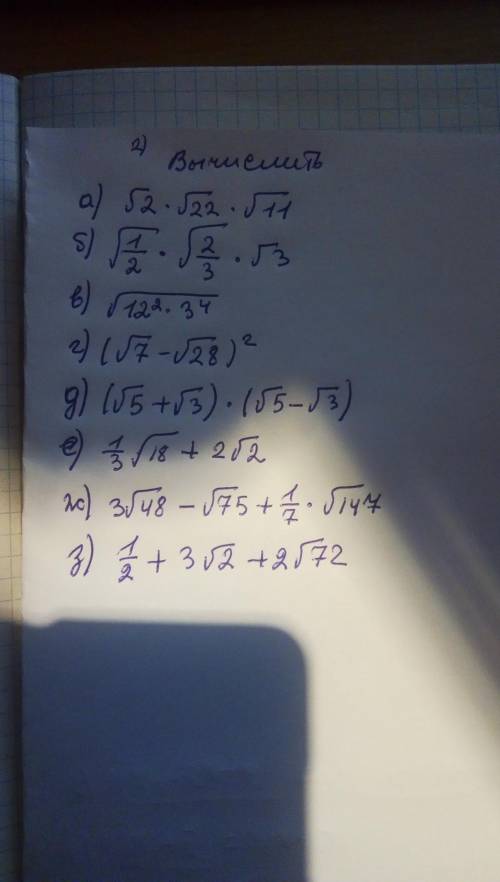 2) Вычислить
а) √2 · √22 · √11
б) √(1/2) · √(2/3) · √3
в) √(12² · 3⁴)
г) (√7 − √28)²
д) (√5 + √3) · (√5 − √3)
е) 1/3 √18 + 2√2
ж) 3√48 − √75 + 1/7 · √147
з) 1/2 + 3√2 + 2√72